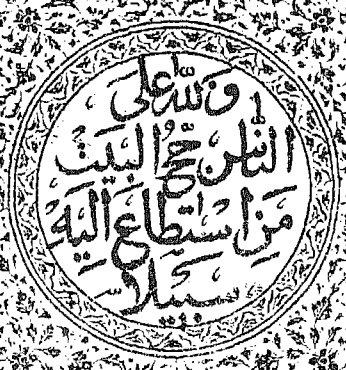 وَلِلّٰهِ عَلَى
النَّاسِ حِجُّ الْبَيْتِ
مَنِ اسْتَطَاعَ إِلَيْهِ
سَبِيلًا